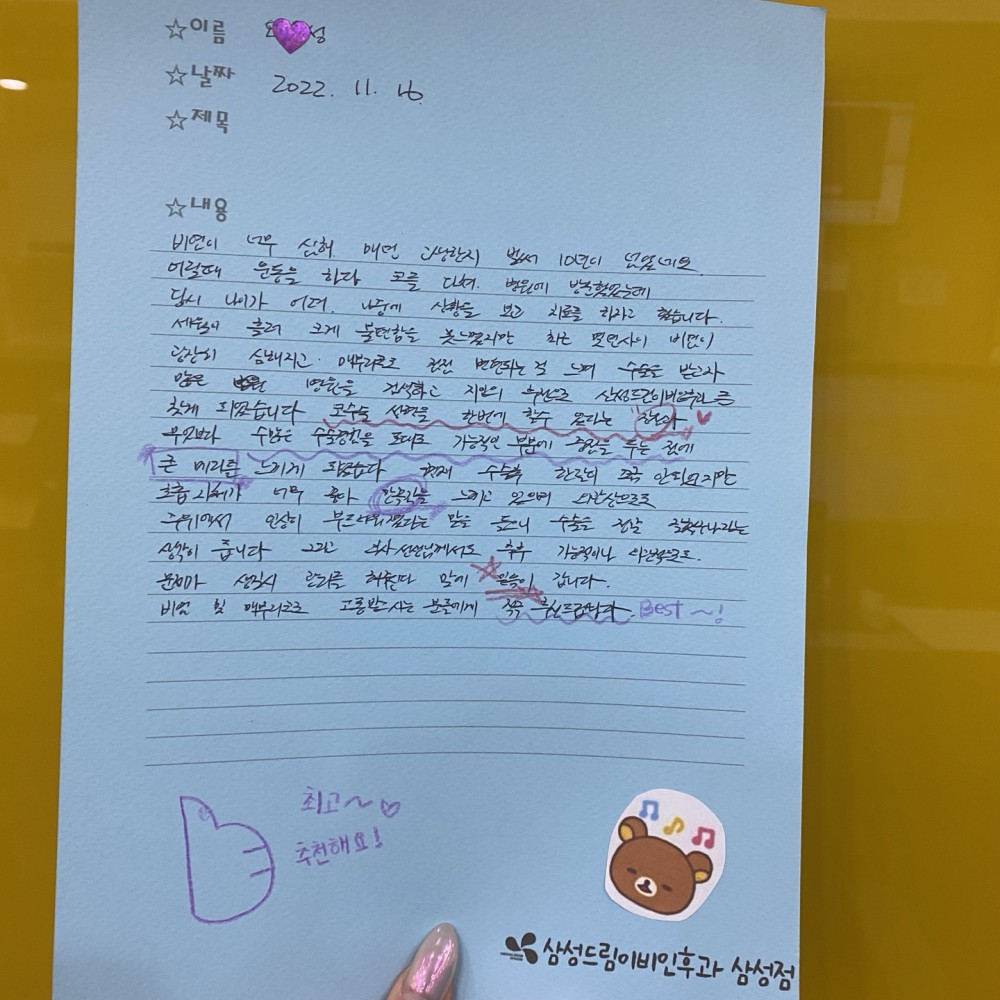 ☆이름 성
☆날짜 2022. 11. 16.
☆제목
☆내용
비염이 너무 심해 매번 고생한지 벌써 10년이 넘었네요.
어릴때 운동을 하다 코를 다쳐. 병원에 방문했었는데
당시 나이가 어려. 나중에 상황을 보고 치료를 하라고 했습니다.
세월이 흘러 크게 불편함을 못느꼈지만 하는 비염이
굉장히 심해지고. 매부리코로 점점 변형되는 걸 느껴 수술을 받고자
많은 병원을 검색하고 지인의 추천으로 삼성드림이비인후과를
찾게 되었습니다 코수술 성형을 한번에 할수 있다는 장점과
무엇보다 수많은 수술경험을 토대로 기능적인 부분에 중점을 두는 것에
큰 메리트를 느끼게 되었습니다 현재 수술후 한달이 조금 안되었지만
호흡 자체가 너무 좋다 만족감을 느끼고 있으며 외관상으로도
주위에서 인상이 부드러워졌다는 말을 들으니 수술을 정말 잘했구나라는
생각이 듭니다 그리고 의사선생님께서도 추후 기능적이나 외관적으로도.
문제가 생길시 관리를 해준다 말에 믿음이 갑니다.
비염 및 매부리코로 고통받으시는 분들에게 적극 추천드립니다. Best ~!
최고~♡
추천해요!
삼성드림이비인후과 삼성점